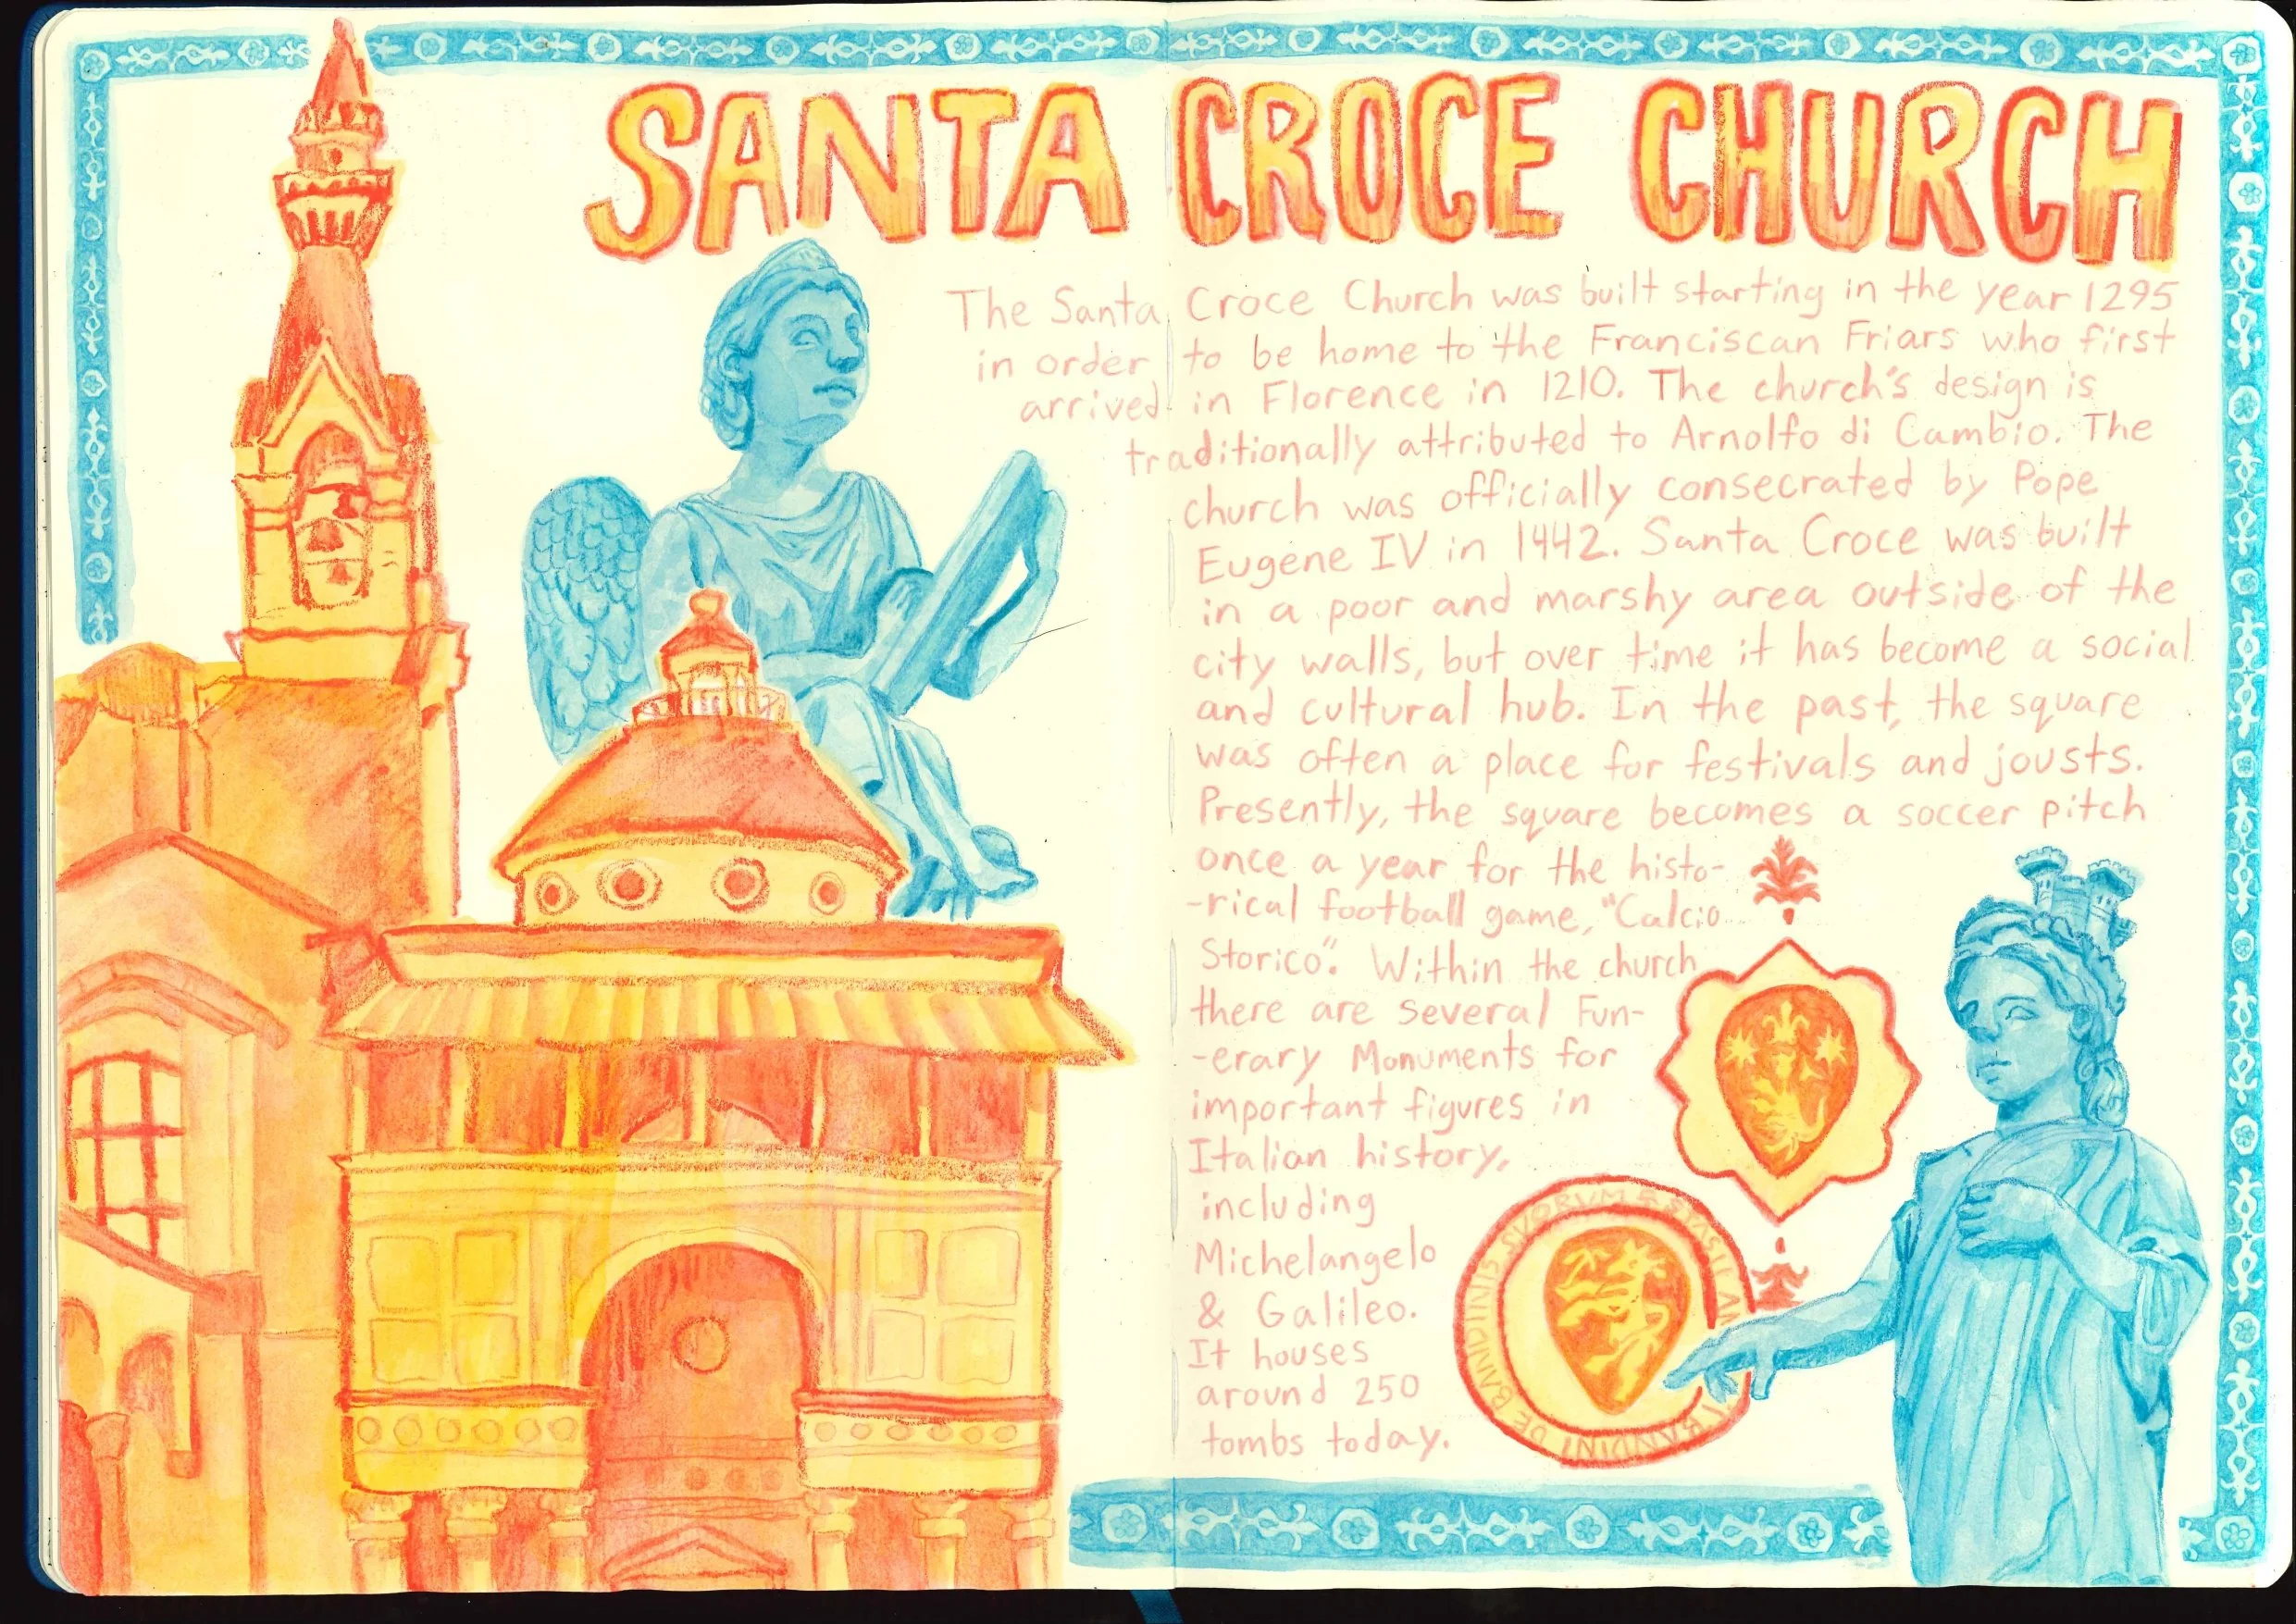 SANTA CROCE CHURCH
The Santa Croce Church was built starting in the year 1295
in order to be home to the Franciscan Friars who first
arrived in Florence in 1210. The church's design is
traditionally attributed to Arnolfo di Cambio. The
church was officially consecrated by Pope
Eugene IV in 1442. Santa Croce was built
in a poor and marshy area outside of the
city walls, but over time it has become a social
and cultural hub. In the past, the square
was often a place for festivals and jousts.
Presently, the square becomes a soccer pitch
once a year for the histo-
-rical football game, "Calcio
Storico". Within the church
there are several Fun-
-erary Monuments for
important figures in
Italian history,
including
Michelangelo
& Galileo.
It houses
around 250
tombs today.
BANDINI DE BANDINIS SVORVM